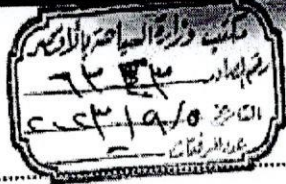 مكتب وزارة السياحة بالاقصر
رقم الصادر
التاريخ ٢٠٢٣/٩/٥
عدد المرفقات -